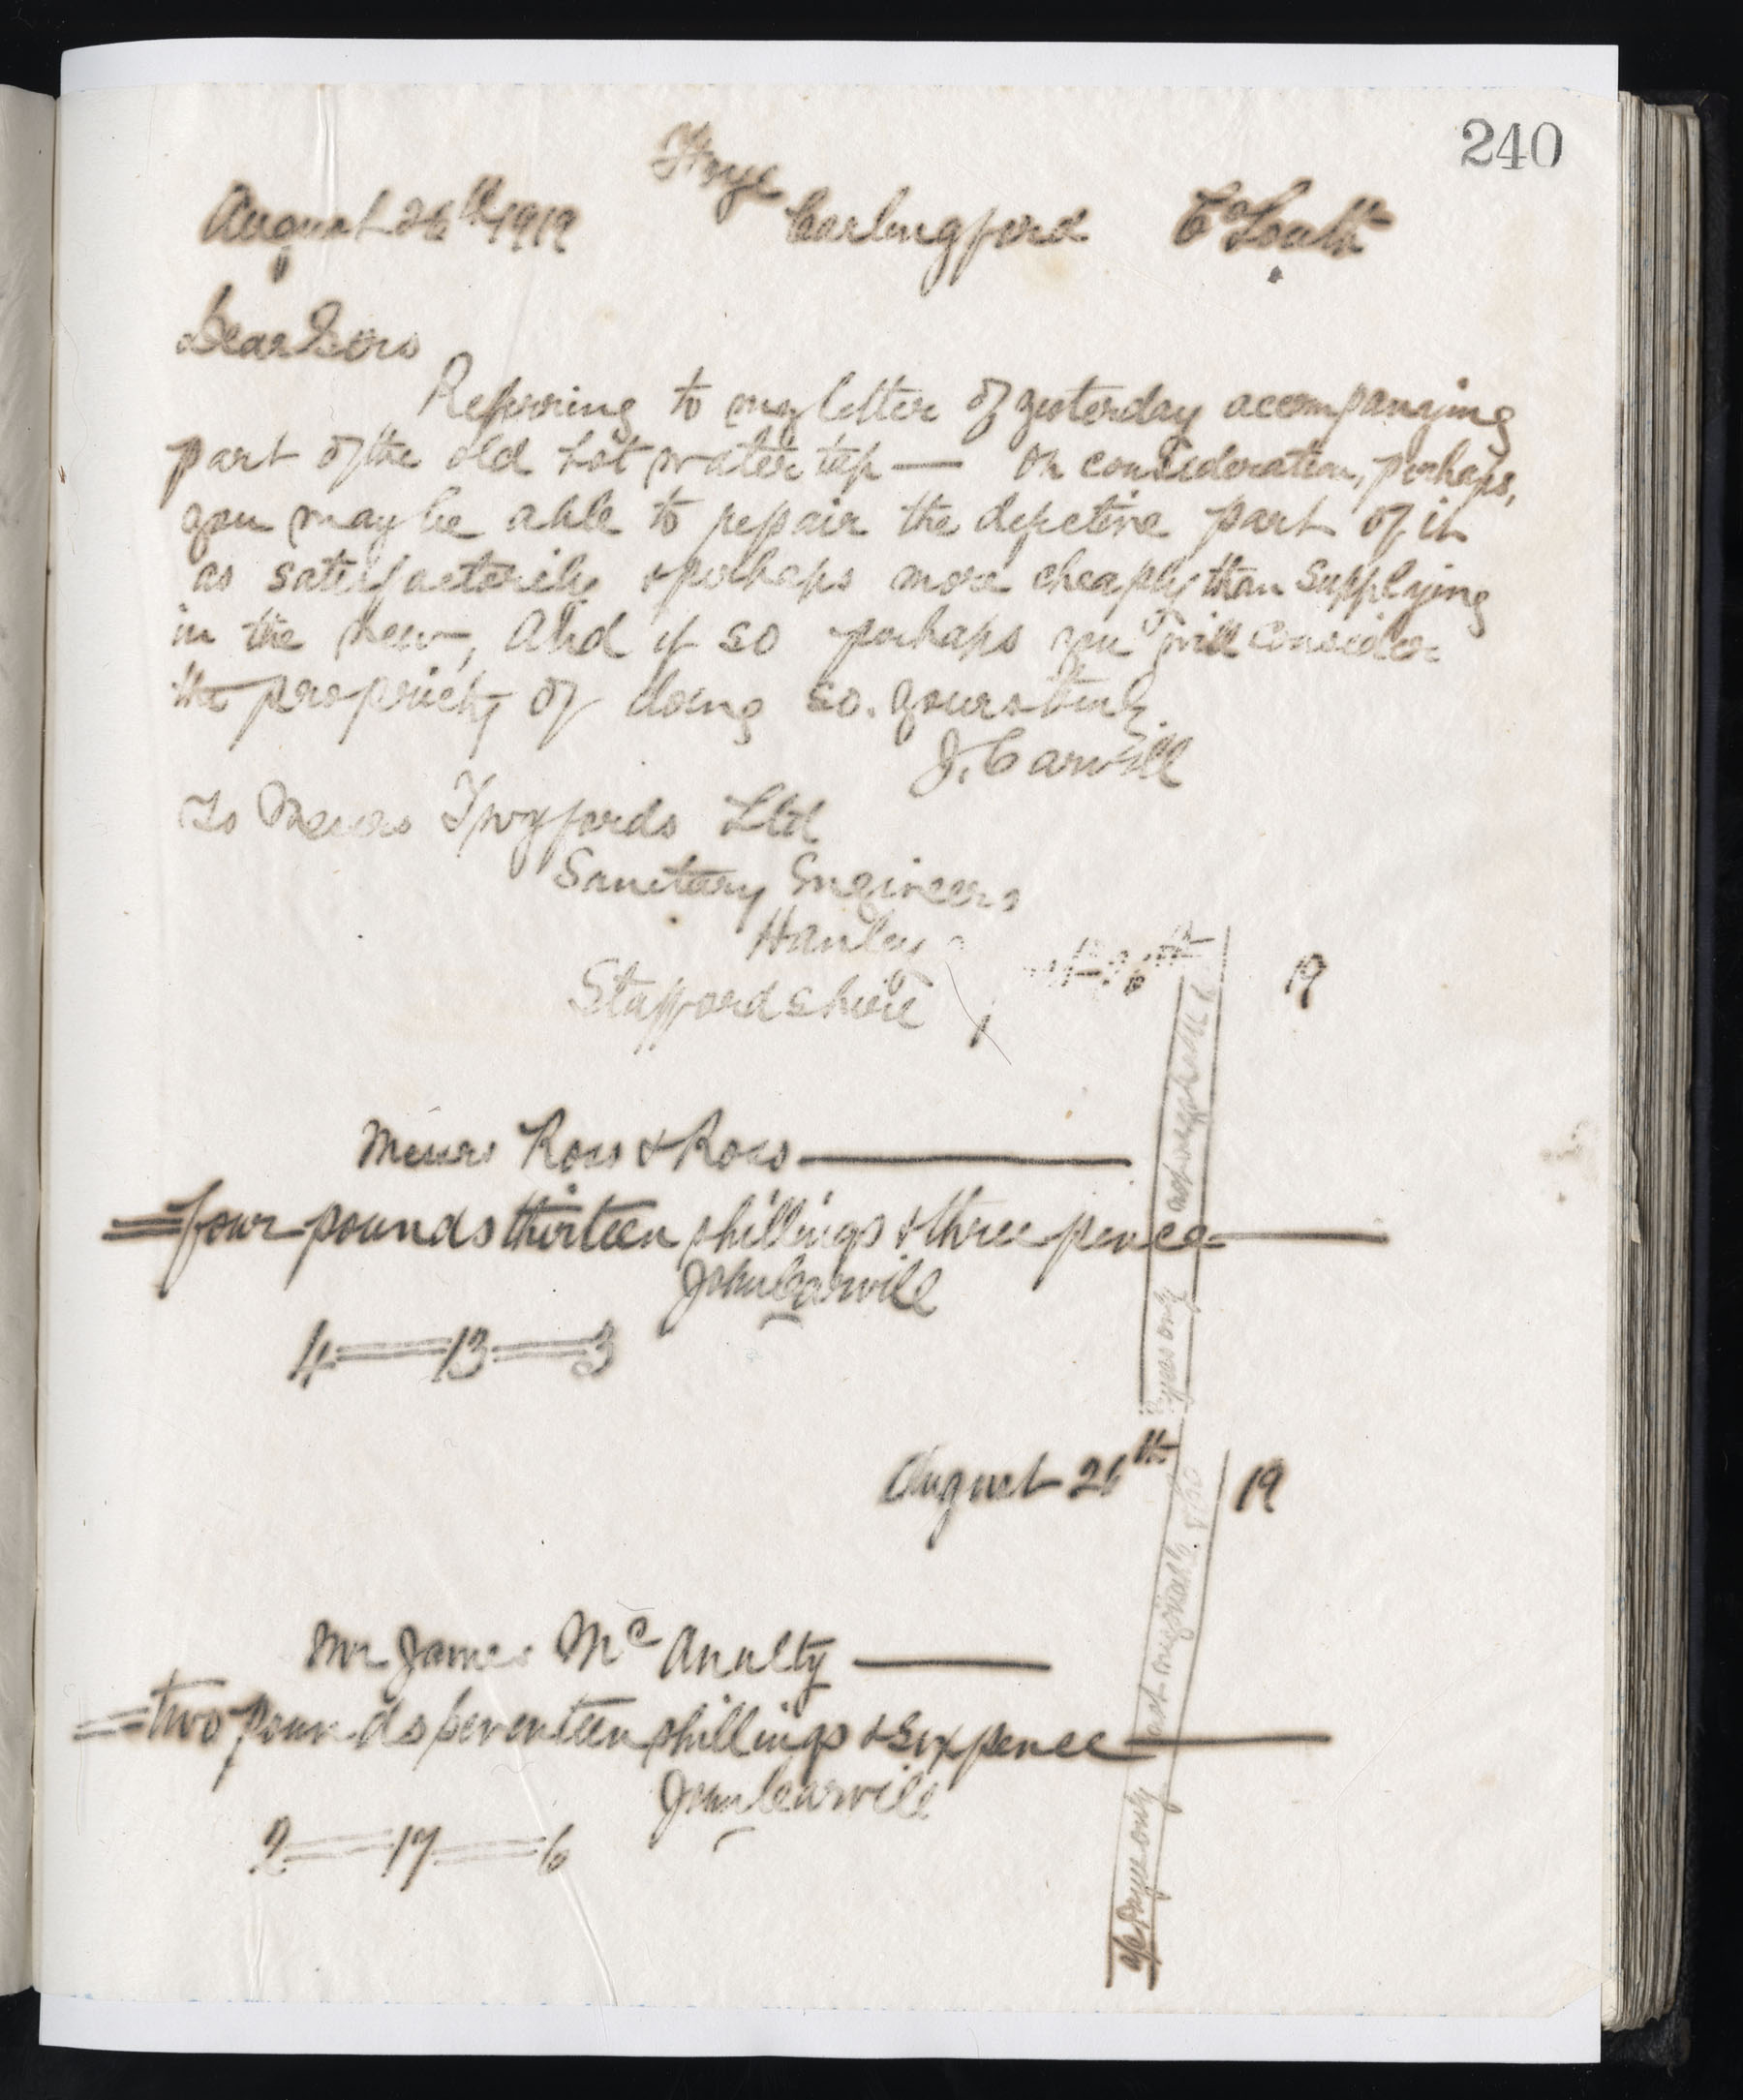 240
Ffoye
August 26th 1919 Carlingford Co Louth
Dear Sirs
Referring to my letter of yesterday accompanying
part of the old hot water tap — on consideration, perhaps,
you may be able to repair the defective part of it
as satisfactorily & perhaps more cheaply than supplying
in the new, And if so perhaps you will consider
the propriety of doing so. yours truly
J. Carvill
To Messrs Twyfords Ltd
Sanitary Engineers
Hanley
Staffordshire
19
Messrs Ross & Ross
four pounds thirteen shillings & three pence
John Carvill
4 = 13 = 3
August 26th 19
Mr James Mc Anulty
two pounds seventeen shillings & sixpence
John Carvill
2 = 17 = 6
a/c payee only